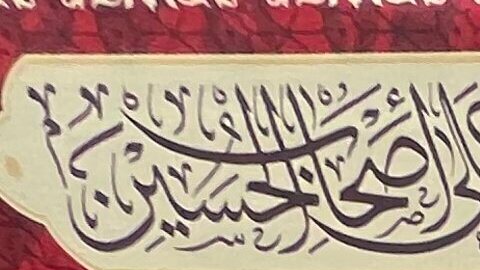 على أصحاب الحسين